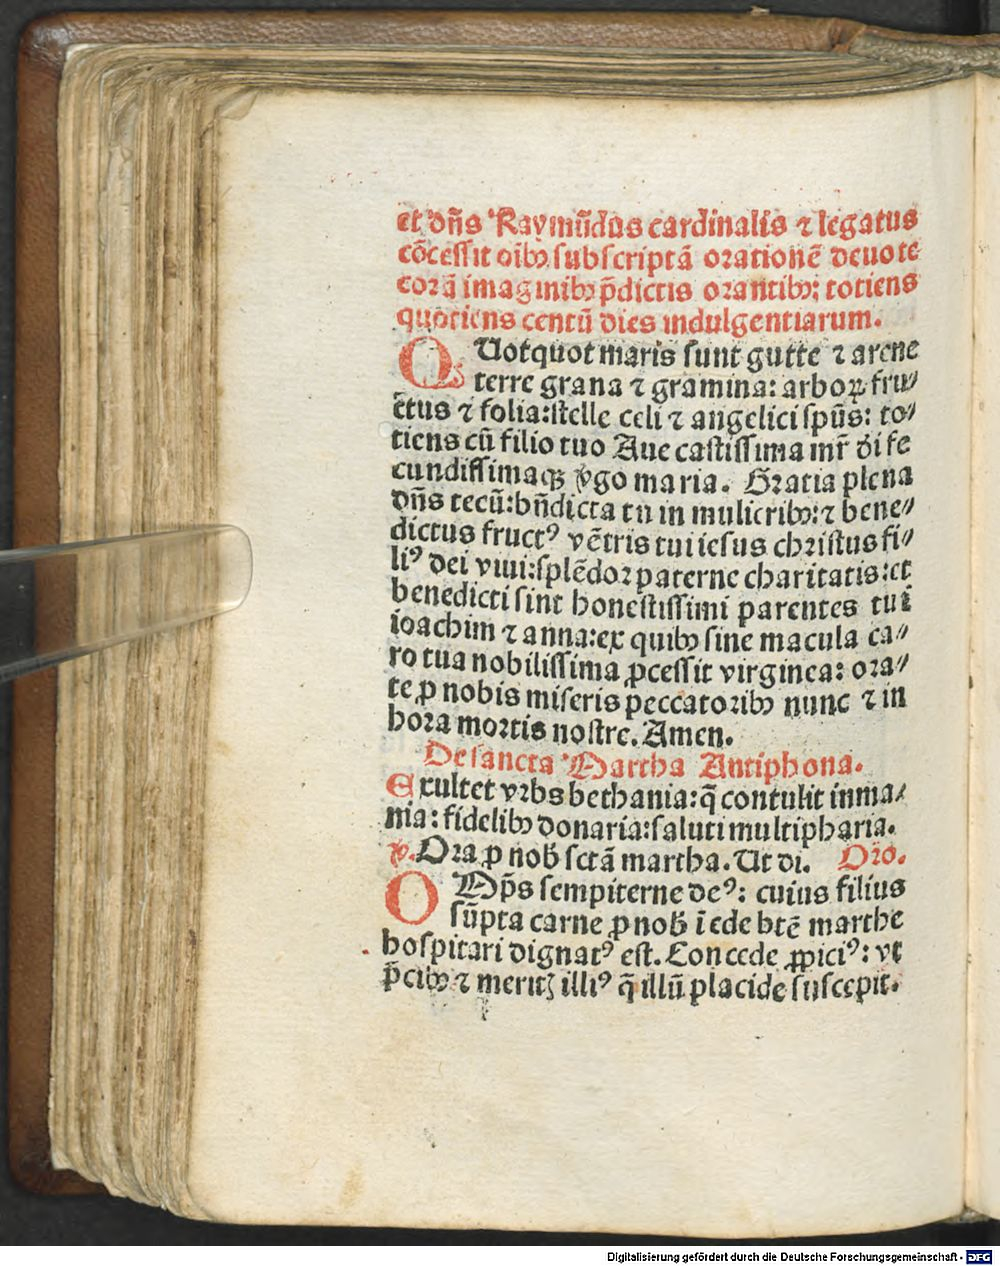 et dn̄s Raymūdus cardinalis ⁊ legatus
cōcessit oībꝫ subscriptā orationē deuote
corā imaginibꝫ p̄dictis orantibꝫ: totiens
quotiens centū dies indulgentiarum.
QUotquot maris sunt gutte ⁊ arene
terre grana ⁊ gramina: arboꝝ fru⸗
ctus ⁊ folia: stelle celi ⁊ angelici spūs: to⸗
tiens cū filio tuo Aue castissima mr̄ di fe
cundissimaqꝫ v̓go maria. Gratia plena
dn̄s tecū: bn̄dicta tu in mulieribꝫ: ⁊ bene⸗
dictus fructꝰ vētris tui iesus christus fi⸗
liꝰ dei viui: splēdor paterne charitatis: et
benedicti sint honestissimi parentes tui
ioachim ⁊ anna: ex quibꝫ sine macula ca⸗
ro tua nobilissima ꝓcessit virginea: ora⸗
te ꝓ nobis miseris peccatoribꝫ nunc ⁊ in
hora mortis nostre. Amen.
De sancta Martha Antiphona.
Exultet vrbs bethania: q̄ contulit inma⸗
nia: fidelibꝫ donaria: saluti multipharia.
℣. Ora ꝓ nob̄ sctā martha. Ut di. Oro.
OMp̄s sempiterne deꝰ: cuius filius
sūpta carne ꝓ nob̄ ī ede btē marthe
hospitari dignatꝰ est. Concede ꝓpiciꝰ: vt
p̄cibꝫ ⁊ meritꝭ illiꝰ q̄ illū placide suscepit.
Digitalisierung gefördert durch die Deutsche Forschungsgemeinschaft - DFG